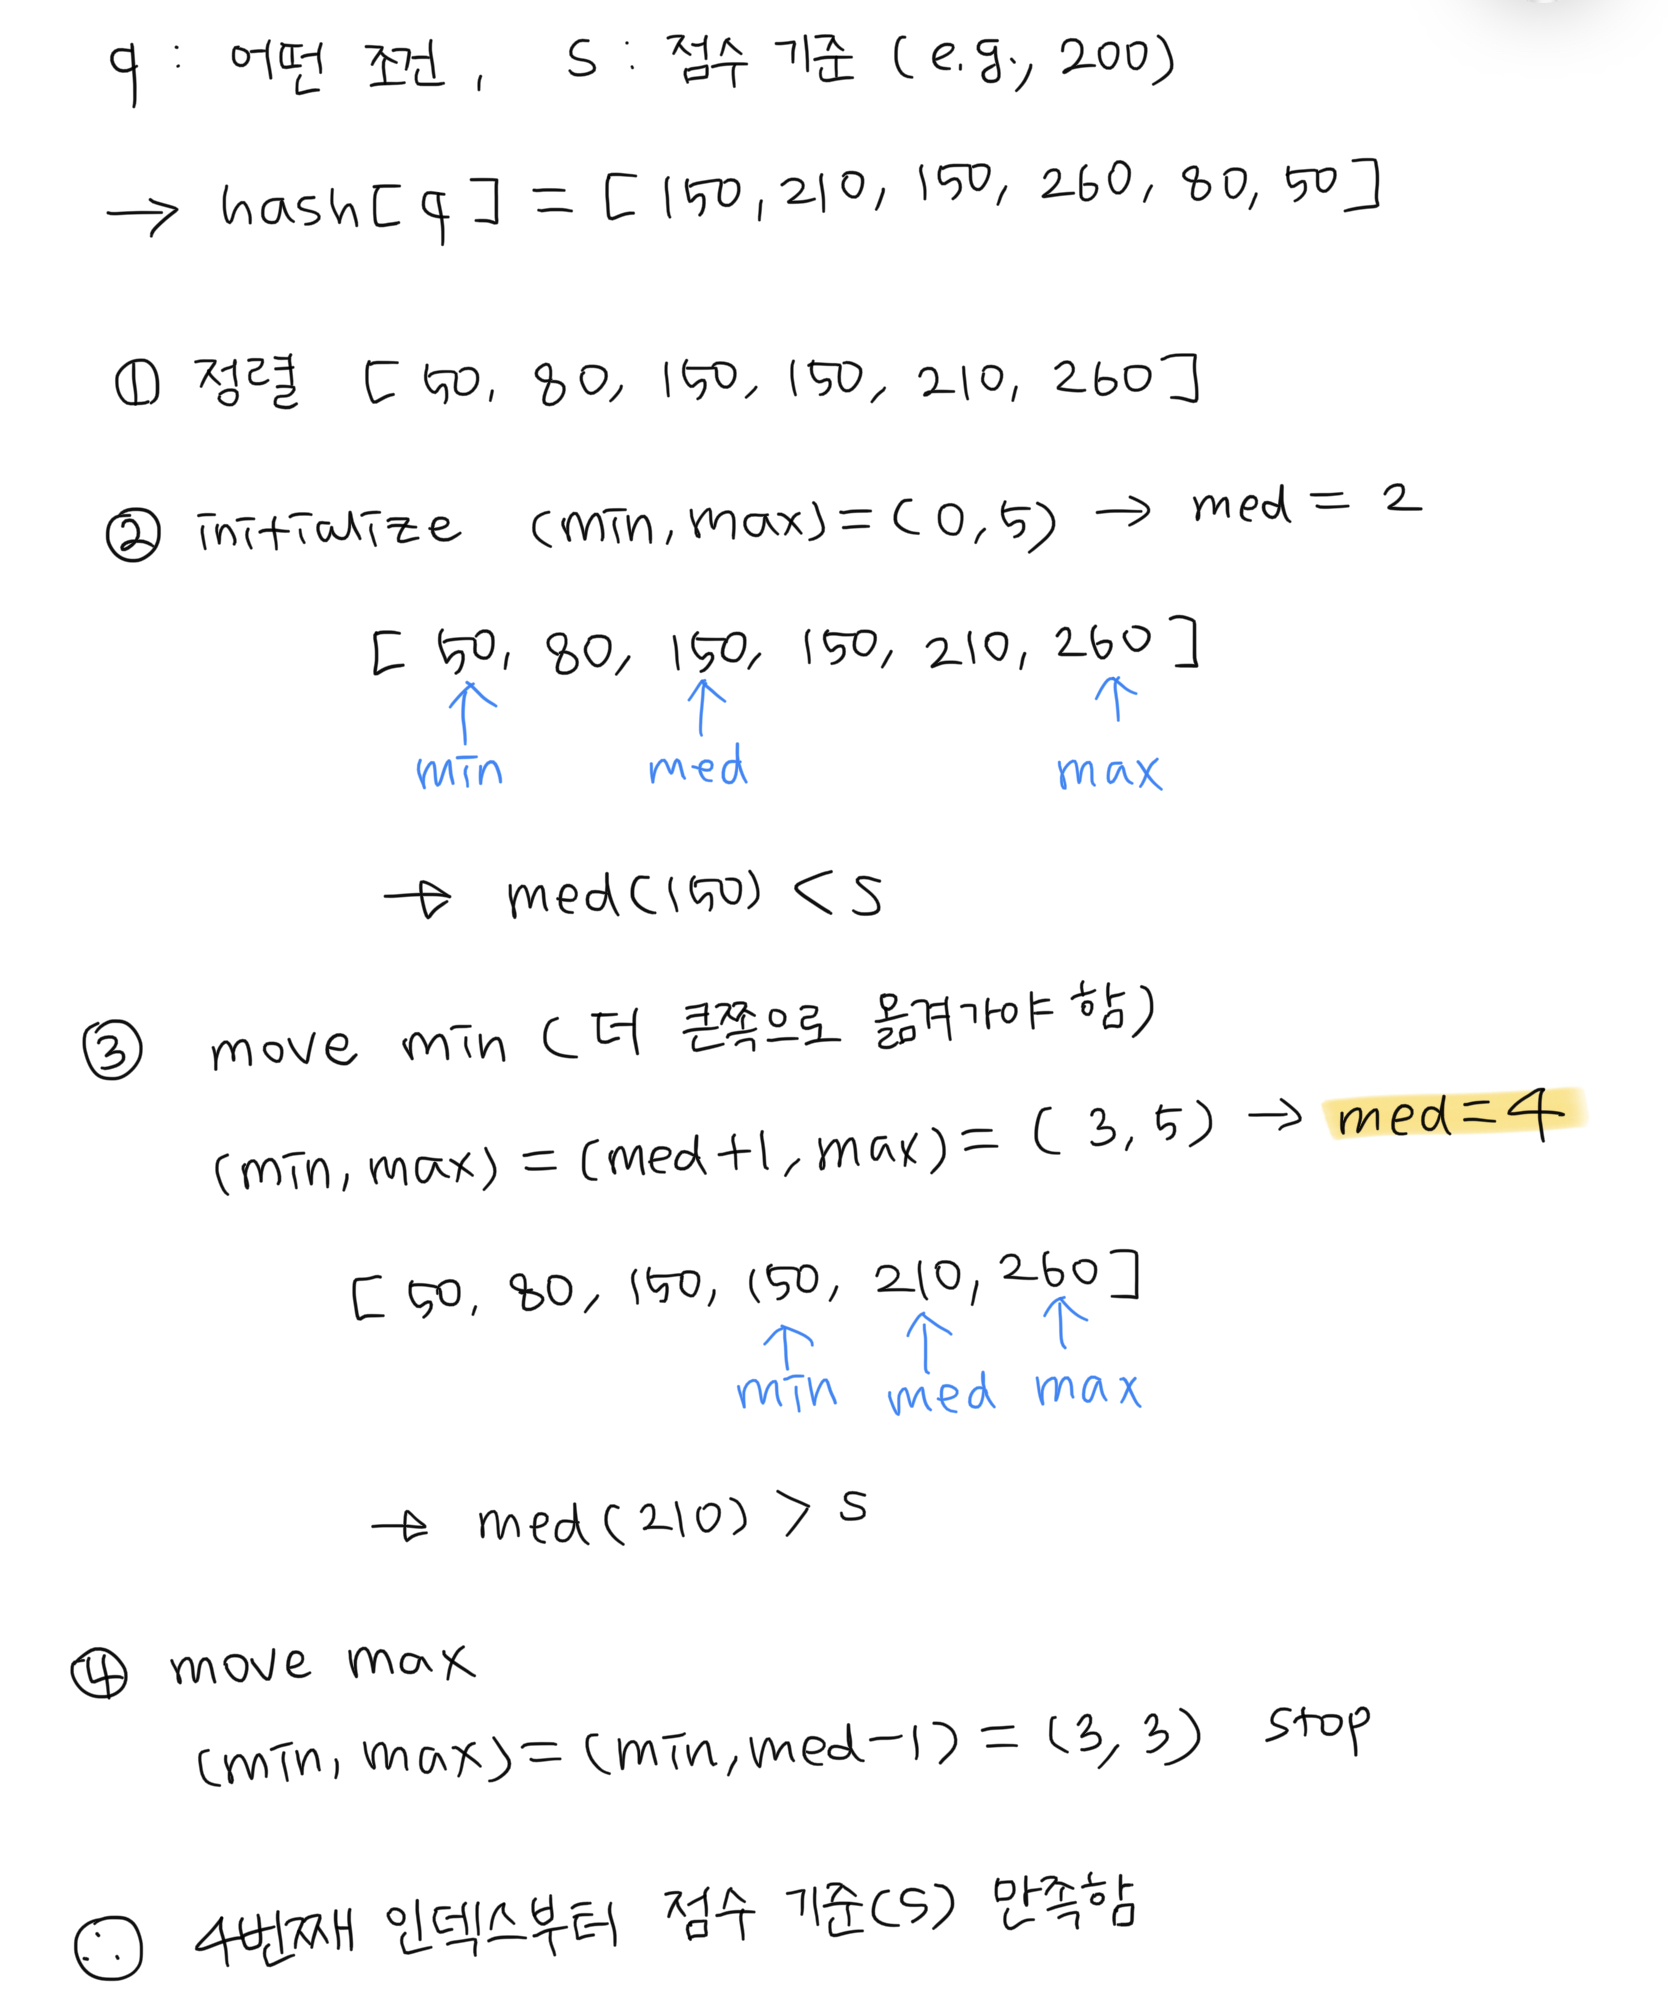 q : 어떤 조건, S : 점수 기준 (e.g., 200)
→ hash[q] = [150, 210, 150, 260, 80, 50]
① 정렬 [50, 80, 150, 150, 210, 260]
② initialize (min, max) = (0, 5) → med = 2
[50, 80, 150, 150, 210, 260]
↑ ↑ ↑
min med max
→ med(150) < S
③ move min (더 큰쪽으로 옮겨가야 함)
(min, max) = (med+1, max) = (3, 5) → med=4
[50, 80, 150, 150, 210, 260]
↑ ↑ ↑
min med max
→ med(210) > S
④ move max
(min, max) = (min, med-1) = (3, 3) stop
∴ 4번째 인덱스부터 점수 기준(S) 만족함